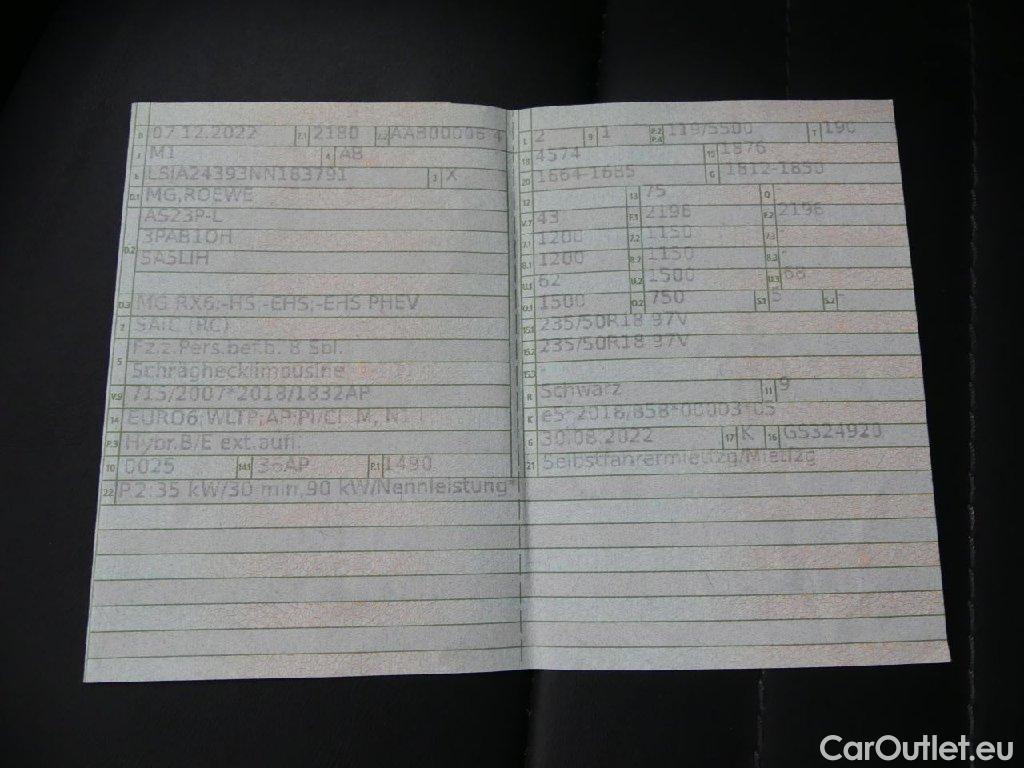 B 07.12.2022 2.1 2180 2.2 AAB000064
J M1 4 AB
E LSJA24393NN183791 3 X
D.1 MG,ROEWE
D.2 AS23P-L
3PAB1OH
SA5LIH
D.3 MG RX6;-HS;-EHS;-EHS PHEV
2 SAIC (RC)
5 Fz.z.Pers.bef.b. 8 Spl.
Schräghecklimousine
V.9 715/2007*2018/1832AP
14 EURO6;WLTP;AP;PI/CI; M, N1 I
P.3 Hybr.B/E ext.aufl.
10 0025 14.1 36AP P.1 1490
22 P.2:35 kW/30 min,90 kW/Nennleistung*
L 2 9 1 P.2 P.4 119/5500 T 190
18 4574 19 1876
20 1664-1685 G 1812-1850
12 13 75 Q
V.7 43 F.1 2196 F.2 2196
7.1 1200 7.2 1150 7.3 -
8.1 1200 8.2 1150 8.3 -
U.1 62 U.2 1500 U.3 68
O.1 1500 O.2 750 S.1 5 S.2 -
15.1 235/50R18 97V
15.2 235/50R18 97V
15.3 -
R Schwarz 11 9
K e5*2018/858*00003*05
6 30.08.2022 17 K 16 GS324920
21 Selbstfahrermietfzg/Mietfzg
CarOutlet.eu